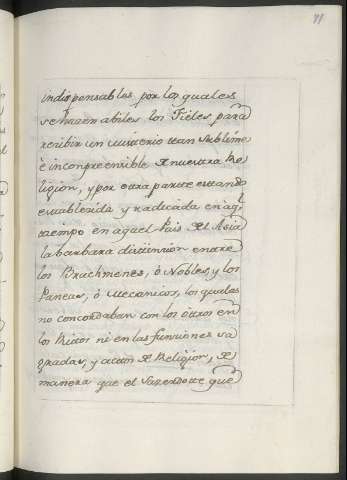 91
indispensables por los quales
se hazen abiles los Fieles para
recibir un misterio tan sublime
è incompreensible de nuestra Re
ligion, y por otra parte estando
establecida y radicada en aql
tiempo en aquel Pais del Asia
la barbara distincion entre
los Brachmenes, ò Nobles, y los
Pareas, ò Mecanicos, los quales
no concordaban con los otros en
los Ritos ni en las funciones sa
gradas, y actos de Religion, de
manera que el Sacerdote que